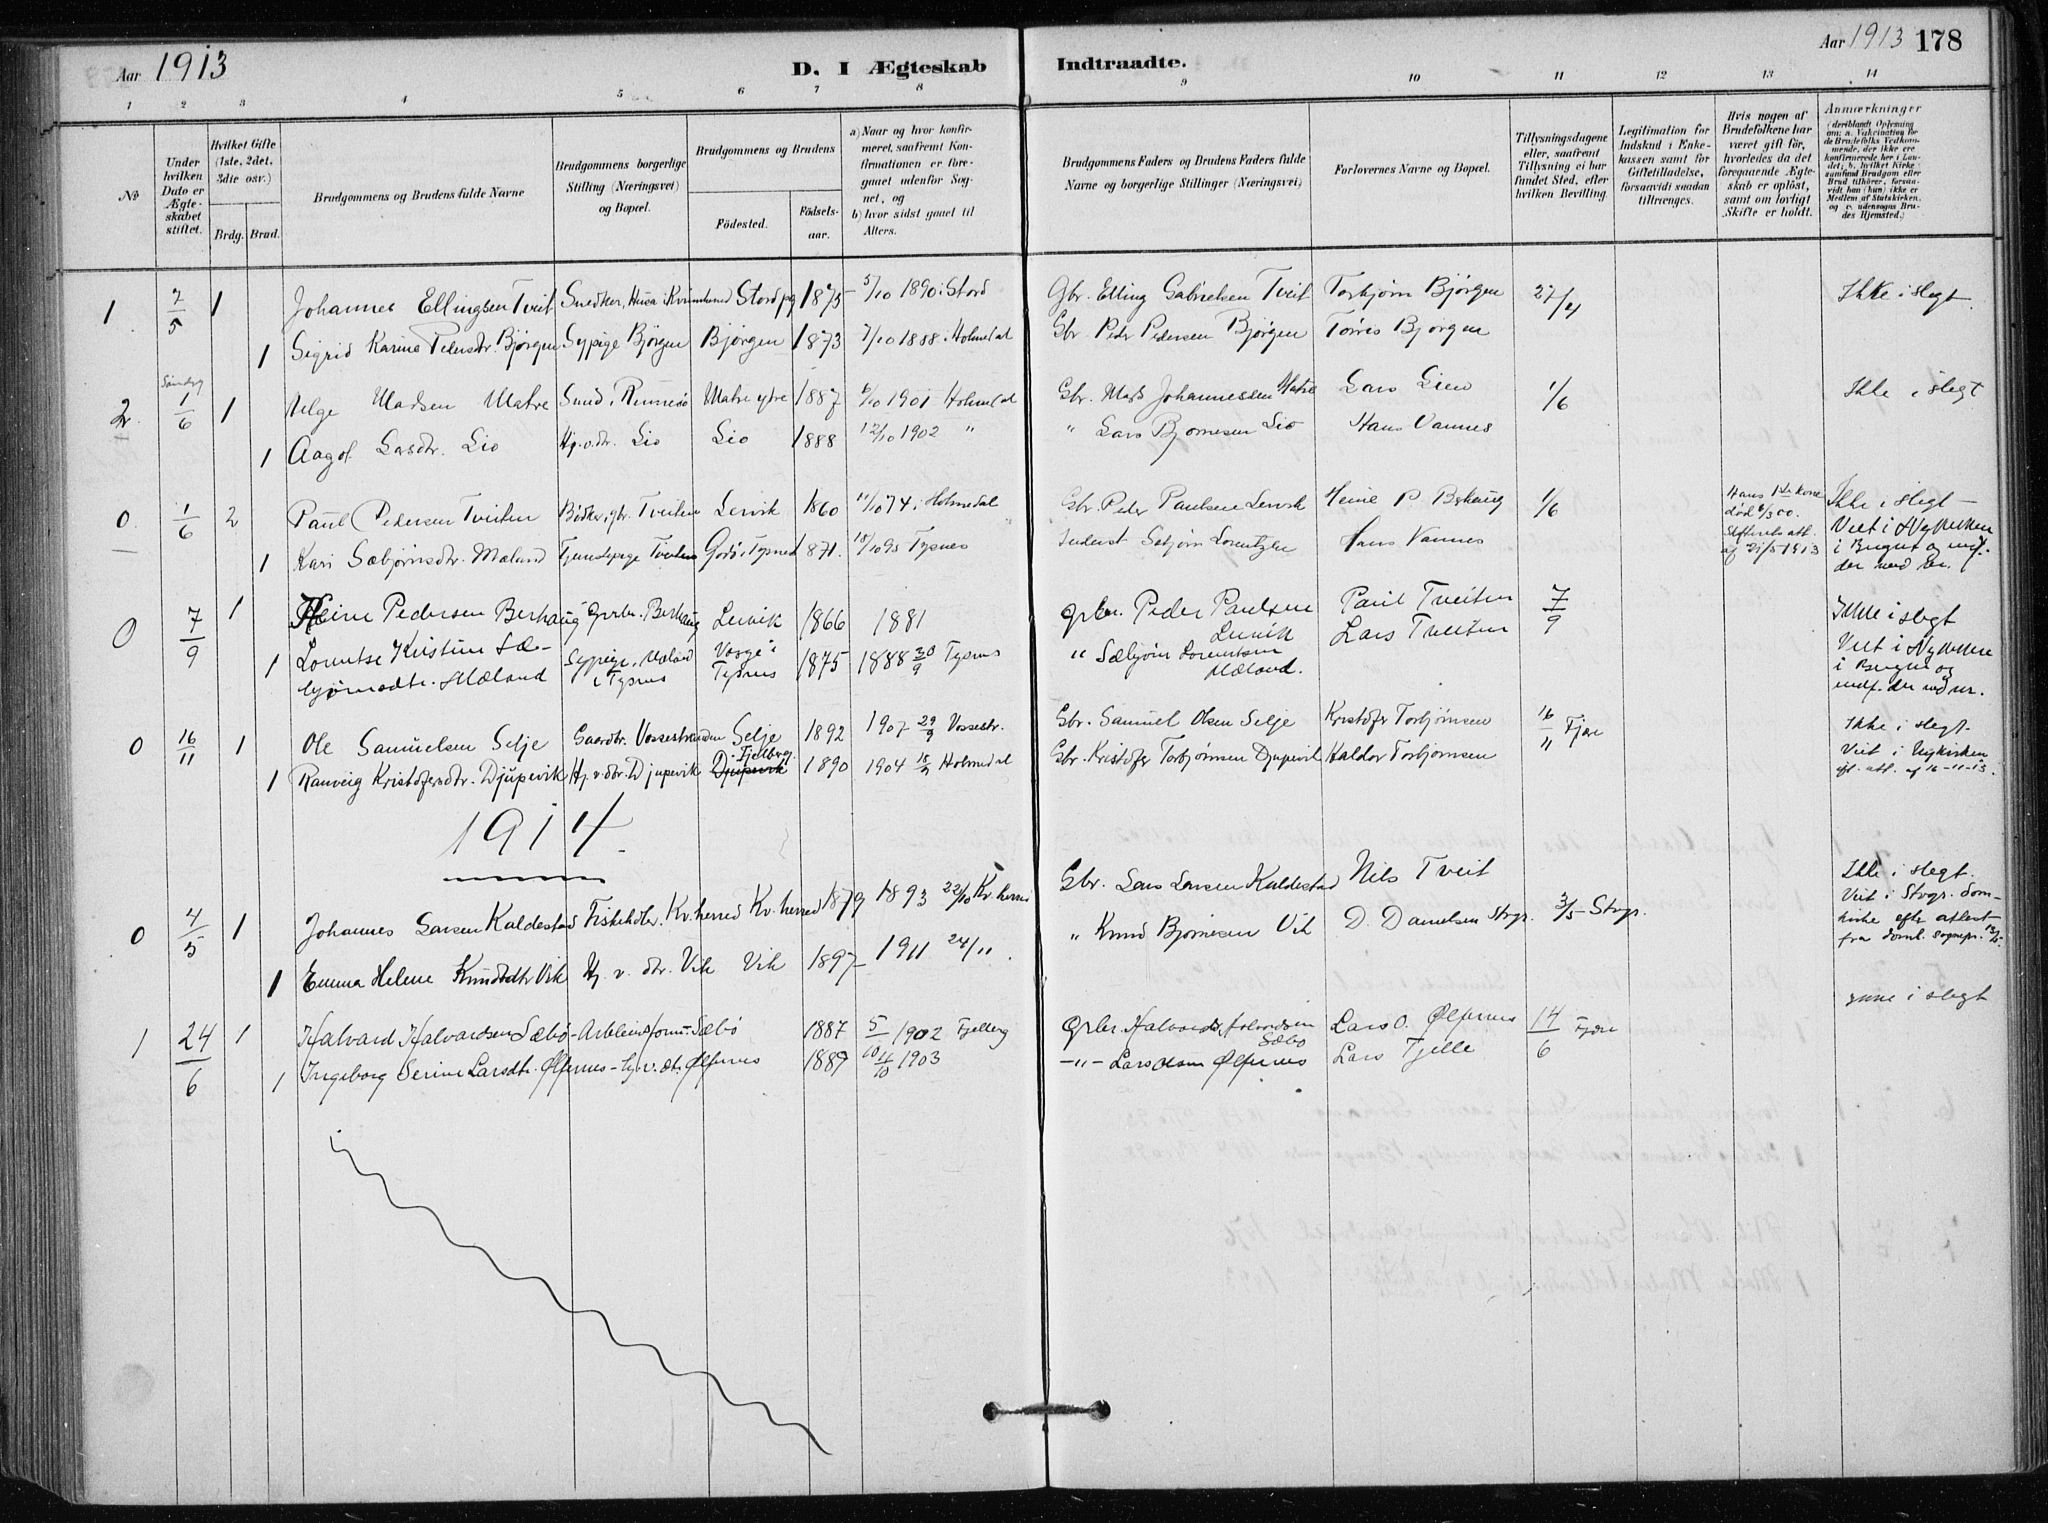 Aar 1913
D. I Ægteskab Indtraadte.
Aar 1913 178
1 2 3 4 5 6 7 8 9 10 11 12 13 14
No
Under hvilken Dato er Ægteskabet stiftet.
Hvilket Gifte (1ste, 2det, 3die osv.)
Brdg. Brud.
Brudgommens og Brudens fulde Navne
Brudgommens borgerlige Stilling (Næringsvei) og Bopæl.
Brudgommens og Brudens
Fødested. Fødselsaar.
a) Naar og hvor konfirmeret, saafremt Konfirmationen er foregaaet udenfor Sognet, og
b) hvor sidst gaaet til Alters.
Brudgommens Faders og Brudens Faders fulde Navne og borgerlige Stillinger (Næringsvei)
Forlovernes Navne og Bopæl.
Tillysningsdagene eller, saafremt Tillysning ei har fundet Sted, efter hvilken Bevilling.
Legitimation for Indskud i Enkekassen samt for Giftetilladelse, forsaavidt saadan tiltrænges.
Hvis nogen af Brudefolkene har været gift før, hvorledes da det foregaaende Ægteskab er opløst, samt om lovligt Skifte er holdt.
Anmærkninger
1 7/5 1 Johannes Ellingsen Tveit Snedker, Husa i Kvinnherred Stord pg 1875 5/10 1890 i Stord Gbr. Elling Gabrielsen Tveit Torbjørn Bjørgen 27/4 Ikke i slegt.
1 Sigrid Karine Pedersdtr. Bjørgen Sypige Bjørgen Bjørgen 1873 7/10 1888 i Holmedal Gbr. Peder Pedersen Bjørgen Torres Bjørgen
2. Søndag 1/6 1 Helge Madsen Matre Smed, Matre ydre 1887 6/10 1901 Holmedal Gbr. Mads Johannessen Matre Lars Lien 1/6 Ikke i slegt
1 Aagot Larsdtr. Lio Hj.v.dtr. Lio Lio 1888 12/10 1902 " " Lars Bjørnesen Lio Hans Vannes
0 1/6 2 Paul Pedersen Tveiten Bødker, gbr. Tveiten Lervik 1860 11/10 74 i Holmedal Gbr. Peder Paulsen Lervik Heine P. Berhaug 1/6 Hans 1ste kone død 6/3 00. Skifterets att. af 21/5 1913 Ikke i slegt Viet i Nykirken i Bergen
1 Kari Sæbjørnsdtr. Mæland Tjenstepige Tveiten Godø, Tysnes 1871. 18/10 95 Tysnes Inderst Sebjørn Lorentzen Hans Vannes
0 7/9 1 Heine Pedersen Berhaug Gbr. Berhaug Lervik 1866 1881 Gbr. Peder Paulsen Lervik Paul Tveiten 7/9 Ikke i slegt Viet i Nykirken i Bergen og
1 Lorentse Kristine Sæbjørnsdtr. Mæland Sypige, Mæland i Tysnes Tysnes 1875 1888 30/9 Tysnes " Sæbjørn Lorentsen Mæland. Lars Tveiten
0 16/11 1 Ole Samuelsen Selje Gaardbr. Vossestranden Selje 1892 1907 29/9 Vossestr. Gbr. Samuel Olsen Selje Kristofer Torbjørnsen 16/11 Fjære Ikke i slegt. Viet i Nykirken eft. att. af 16-11-13.
1 Ranveig Kristofersdtr. Djupevik Hj.v.dtr. Djupevik Fjelberg Djupevik 1890 1904 18/9 Holmedal Gbr. Kristofer Torbjørnsen Djupevik Haldor Torbjørnsen
1914
0 4/5 1 Johannes Larsen Kaldestad Fiskehdlr. Kv.herred Kv.herred 1879 1893 22/10 Kv.herred Gbr. Lars Larsen Kaldestad Nils Tveit 3/5 Stvgr. Ikke i slegt. Viet i Stvgr. Domkirke efter attest fra doml. sognepr.
1 Emma Helene Knudsdtr. Vik Hj. v. dtr. Vik Vik 1897 1911 24/11. " Knud Bjørnesen Vik D. Danielsen Stvgr.
1 24/6 1 Halvard Halvardsen Sæbø Arbeidsform. Sæbø 1887 5/10 1902 Fjelberg Gbr. Halvard Halvardsen Sæbø Lars O. Ølfernes 14/6 Fjære Ikke i slegt
1 Ingeborg Serine Larsdtr. Ølfernes - Hj.v.dt. Ølfernes 1889 4/10 1903 -"- Lars Olsen Ølfernes Lars Tjelle